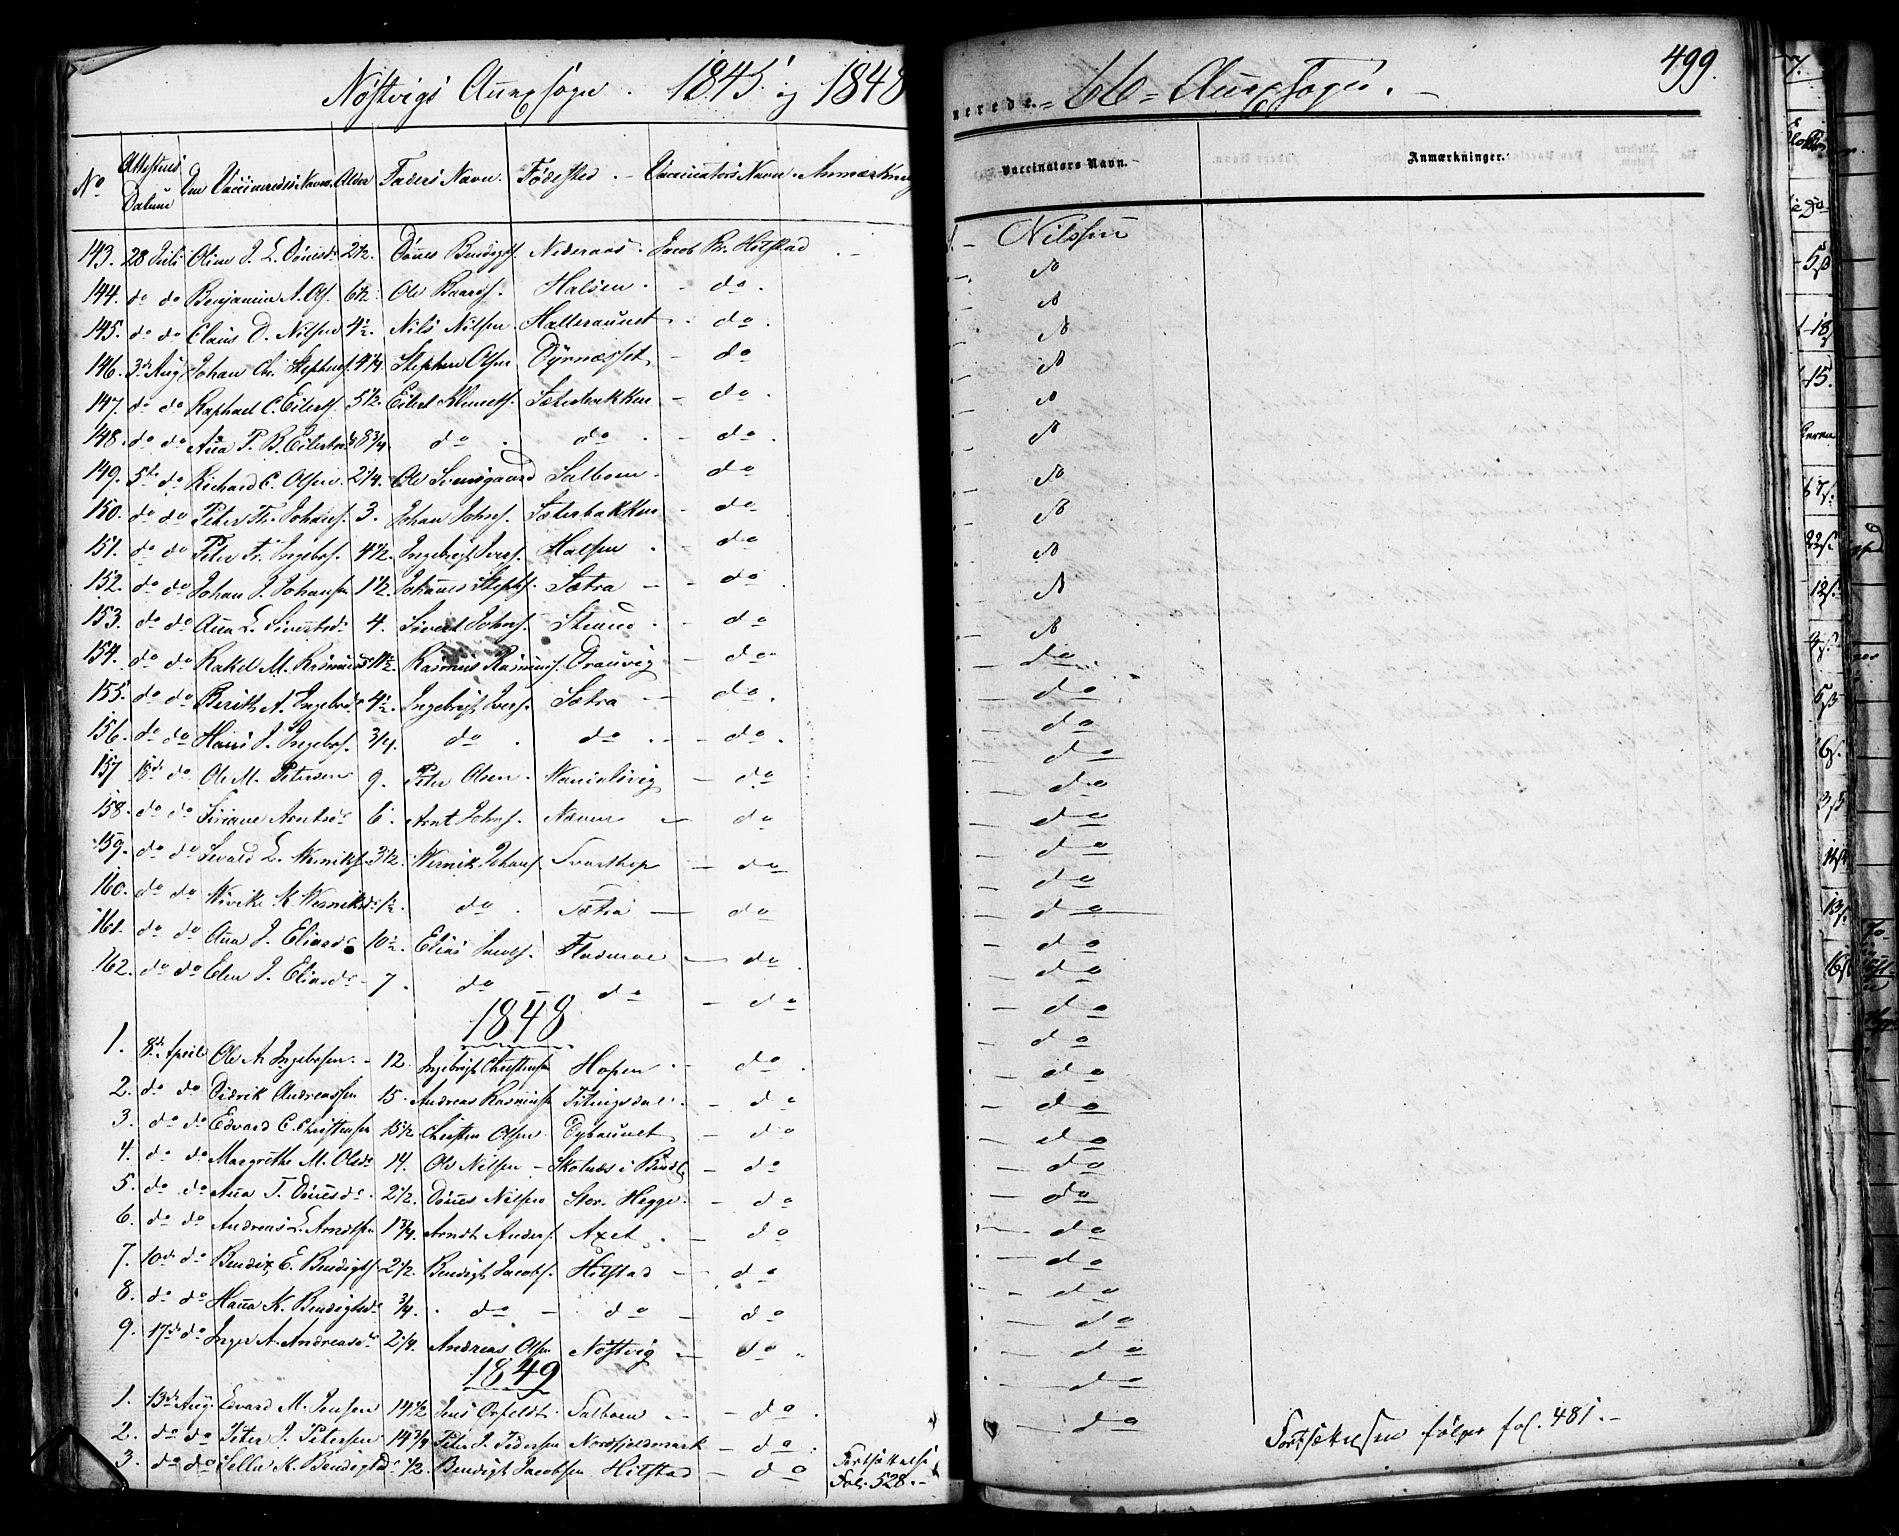 Nøstvigs Annexsogn. 1845 og 1848
No Attestens Datum Den Vaccineredes Navn. Alder Faders Navn. Fødested. Vaccinators Navn. Anmærkning
143. 28 Juli Oline J. L. Dønesd. 2½. Dønes Bendigts. Nederaas. Jacob B. Hilstad
144. do do Benjamin A. Ols. 6½. Ole Baards. Halsen. do.
145. do do Claus D. Nilsen 4½. Nils Nilsen. Halleraunet. do.
146. 3de Aug. Johan Chr. Stephens. 4¼. Stephen Olsen Dyrnæsset do
147. do do Raphael C. Eilerts. 5½. Eilert Klemets. Sæterbakken do.
148. do do Ana P. B. Eilertsd. 8¾. do. do. do.
149. 5te do Richard C. Olsen. 2¼. Ole Svensgaard Salboen. do
150. do do Peter Th. Johans. 3. Johan Johns. Sæterbakken do
151. do do Peter Fr. Ingebr. 4½. Ingebrigt Ivers. Halsen do
152. do do Johan J. Johansen 1½. Johanes Steph. Sætra do
153. do do Ana L. Sivertsd. 4. Sivert Johns. Strand. do
154. do do Rakel M. Rasmusd. 1½. Rasmus Rasmuss. Drauvig do
155. do do Berith A. Ingebrd. 4½. Ingebrigt Ivers. Sætra do.
156. do do Hans J. Ingebr. ¾. do. do. do.
157 18de do Ole M. Petersen 9. Peter Olsen. do
158. do do Siriane Arntsd. 6. Arnt Johns. Naven do
159. do do Sevald L. Werniks. 3½. Wernik Johans. Svarthop do
160. do do Wivike K. Werniksd. ½. do. Sætra do
161. do do Ana J. Eliasd. 10½. Elias Jacobs. Flasnæs do.
162. do do Elen J. Eliasd. 7. do do do
1848
1. 8de April Ole A. Ingebrsen. 12. Ingebrigt Christensen Hopen. do.
2. do do Didrik Andreassen 15. Andreas Rasmussen Titingsdal. do
3. do do Edvard C. Christensen 15½ Christen Olsen. Dybaunet do
4. do do Margrethe M. Olsd. 14. Ole Nilsen Skotnæs i Bind. do
5. do do Ana T. Dønesd. 2½. Dønes Nilsen Stor. Hegge. do
6. do do Andreas L. Arndtsen 1¾. Arndt Anders. Axet. do
7. 10de do Bendix E. Bendigts. 2½. Bendigt Jacobs. Hilstad do
8. do do Hana K. Bendigtsd. ¾. do do do
9. 17de do Inger A. Andreasd. 2¼. Andreas Olsen Nøstvig do
1849
1. 13de Aug. Edvard M. Jensen 14½ Jens Orfeldt. Salboen do.
2. do do Peter J. Petersen 14¾ Peter J. Pedersen Nordfjeldmark do.
3. do do Sella K. Bendigtsd. ½. Bendigt Jacobsen Hilstad do
Fortsættelse
Fol. 528.
499.
nerede. 66 Annexsogn.
Vaccinators Navn. Anmærkninger.
Nilssen
N
N
N
N
N
N
N
N
N
N
N
do
do
do
do
do
do
do
do
do
do
do
do
do
do
do
do
do
do
do
do
do
do
do
do
do
Fortsættelsen følger fol. 481.